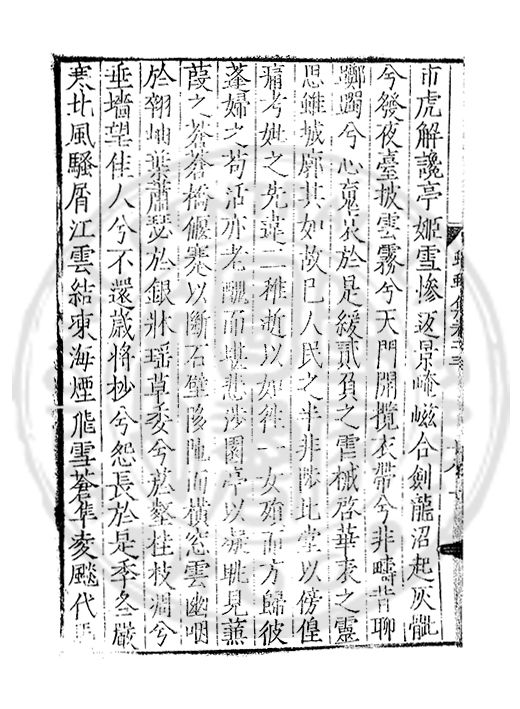 市虎解讒亭姬雪慘返景崦嵫合劍龍沼起灰骴
兮發夜臺披雲霧兮天門開攬衣帶兮非疇昔聊
躑躅兮心哀哀於是緩貳負之雪械啓華表之靈
思雖城廓其如故已人民之半非陟此堂以傍偟
痛考妣之先違二稚逝以如徃一女殞而方歸彼
蓬婦之苟活亦老醜而堪悲涉園亭以凝眺見蒹
葭之蒼蒼橋偃蹇以斷石壁陊陁而橫窓雲幽咽
於翔岫葉蕭瑟於銀牀瑶草委兮菸壑桂枝凋兮
垂墻望佳人兮不還歲將杪兮怨長於是季冬嚴
寒北風騷屑江雲結凍海煙飛雪蒼隼凌飈代